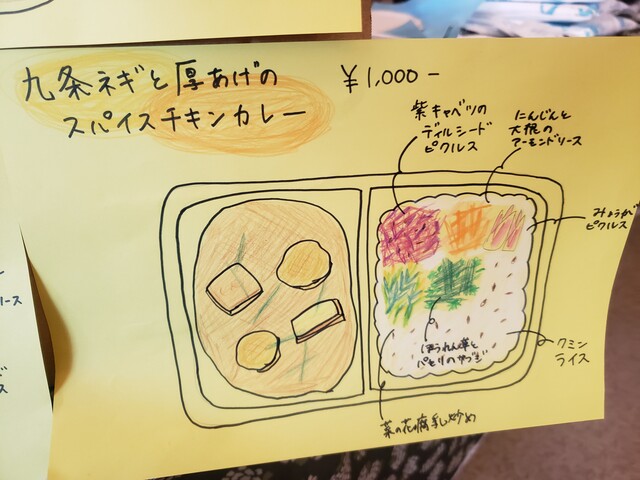 九条ネギと厚あげの
スパイスチキンカレー
¥1,000-
紫キャベツの
ディルシード
ピクルス
にんじんと
大根の
アーモンドソース
みょうが
ピクルス
クミン
ライス
ほうれん草と
菜の花腐乳炒め
ソース
ス